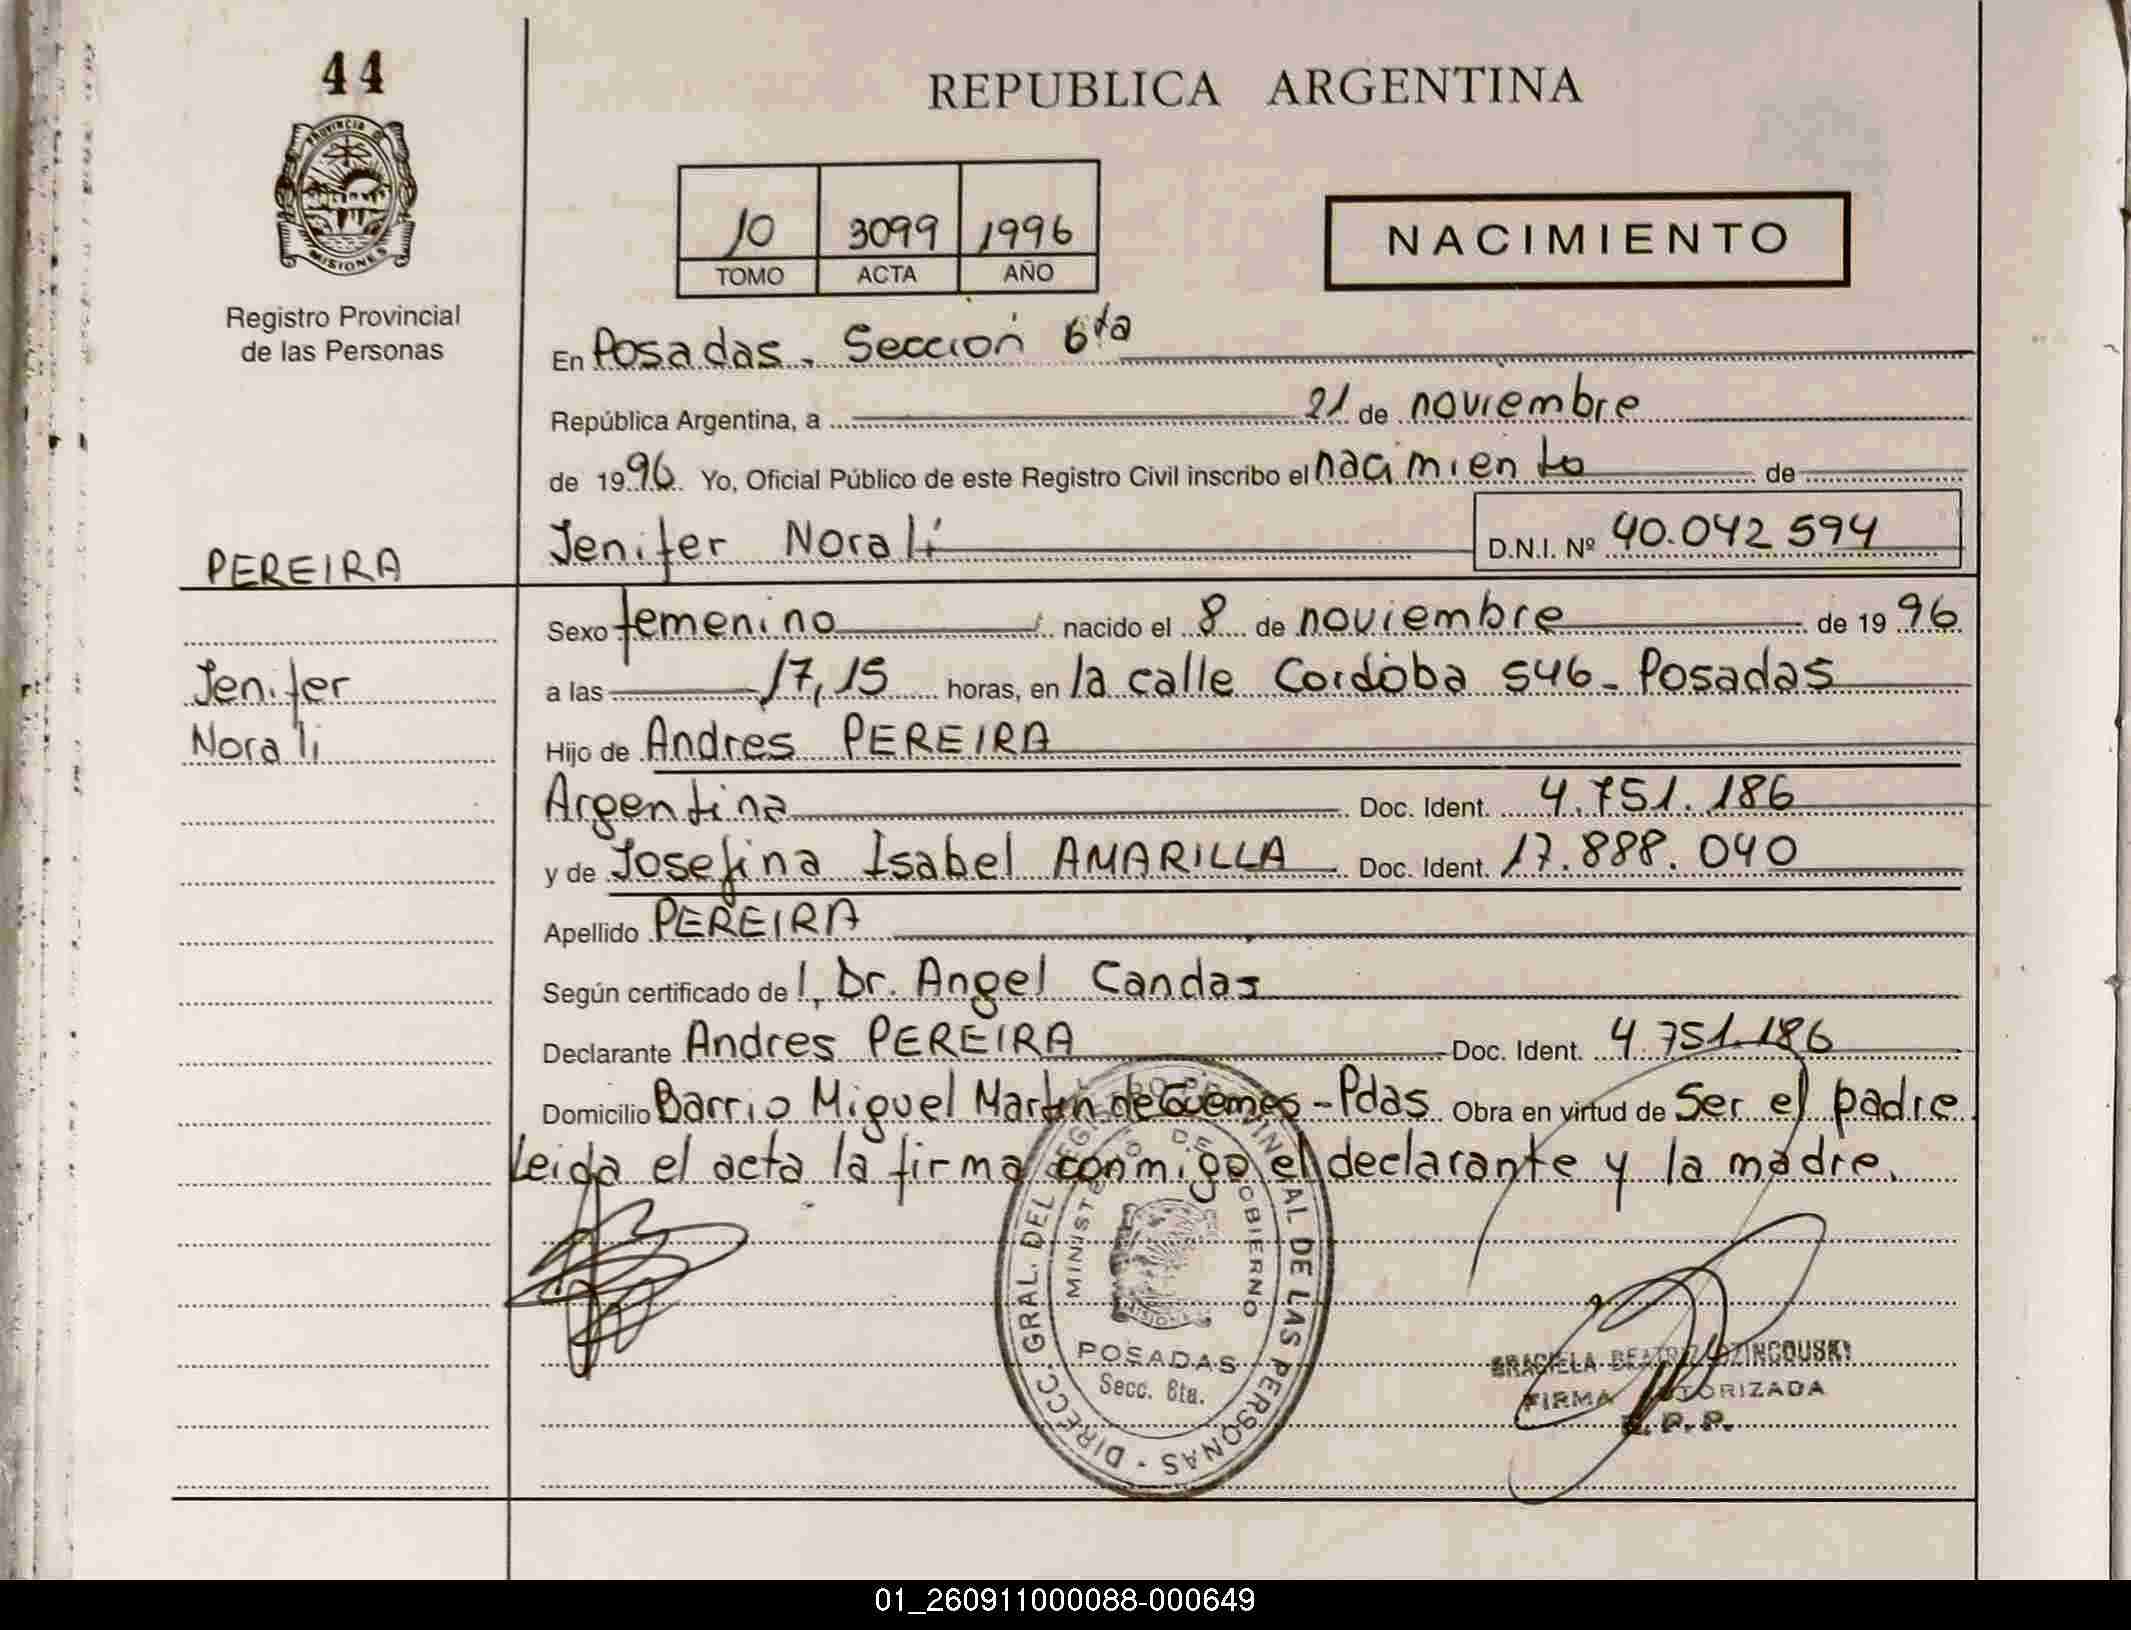 44
REPUBLICA ARGENTINA
PROVINCIA DE
MISIONES
10 3099 1996
TOMO ACTA AÑO
NACIMIENTO
Registro Provincial
de las Personas
En Posadas. Sección 6ta
República Argentina, a 21 de noviembre
de 1996. Yo, Oficial Público de este Registro Civil inscribo el nacimiento de
Jenifer Noralí D.N.I. Nº 40.042 594
PEREIRA
Sexo femenino nacido el 8 de noviembre de 1996
Jenifer
a las 17,15 horas, en la calle Cordoba 546 - Posadas
Norali
Hijo de Andres PEREIRA
Argentina Doc. Ident. 4.751.186
y de Josefina Isabel AMARILLA Doc. Ident. 17.888.040
Apellido PEREIRA
Según certificado de l, Dr. Angel Candas
Declarante Andres PEREIRA Doc. Ident. 4.751.186
Domicilio Barrio Miguel Martin de Güemes - Pdas Obra en virtud de Ser el padre
Leida el acta la firma conmigo el declarante y la madre.
DIRECC. GRAL. DEL REGISTRO PROVINCIAL DE LAS PERSONAS
MINISTERIO DE GOBIERNO
MISIONES
POSADAS
Secc. 6ta.
GRACIELA BEATRIZ
FIRMA AUTORIZADA
R.P.P.
01_260911000088-000649